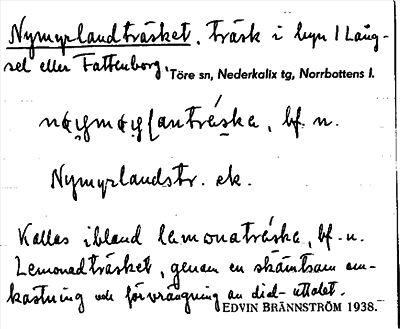 Nymyrlandträsket, träsk i byn Lång-
sel eller Fattenborg,
Töre sn, Nederkalix tg, Norrbottens l.
bf. n.
Nymyrlandstr. ek.
Kallas ibland lemonatráska, bf. n.
Lemonadträsket, genom en skämtsam om-
kastning och förvrängning av dial-uttalet.
EDVIN BRÄNNSTRÖM 1938.